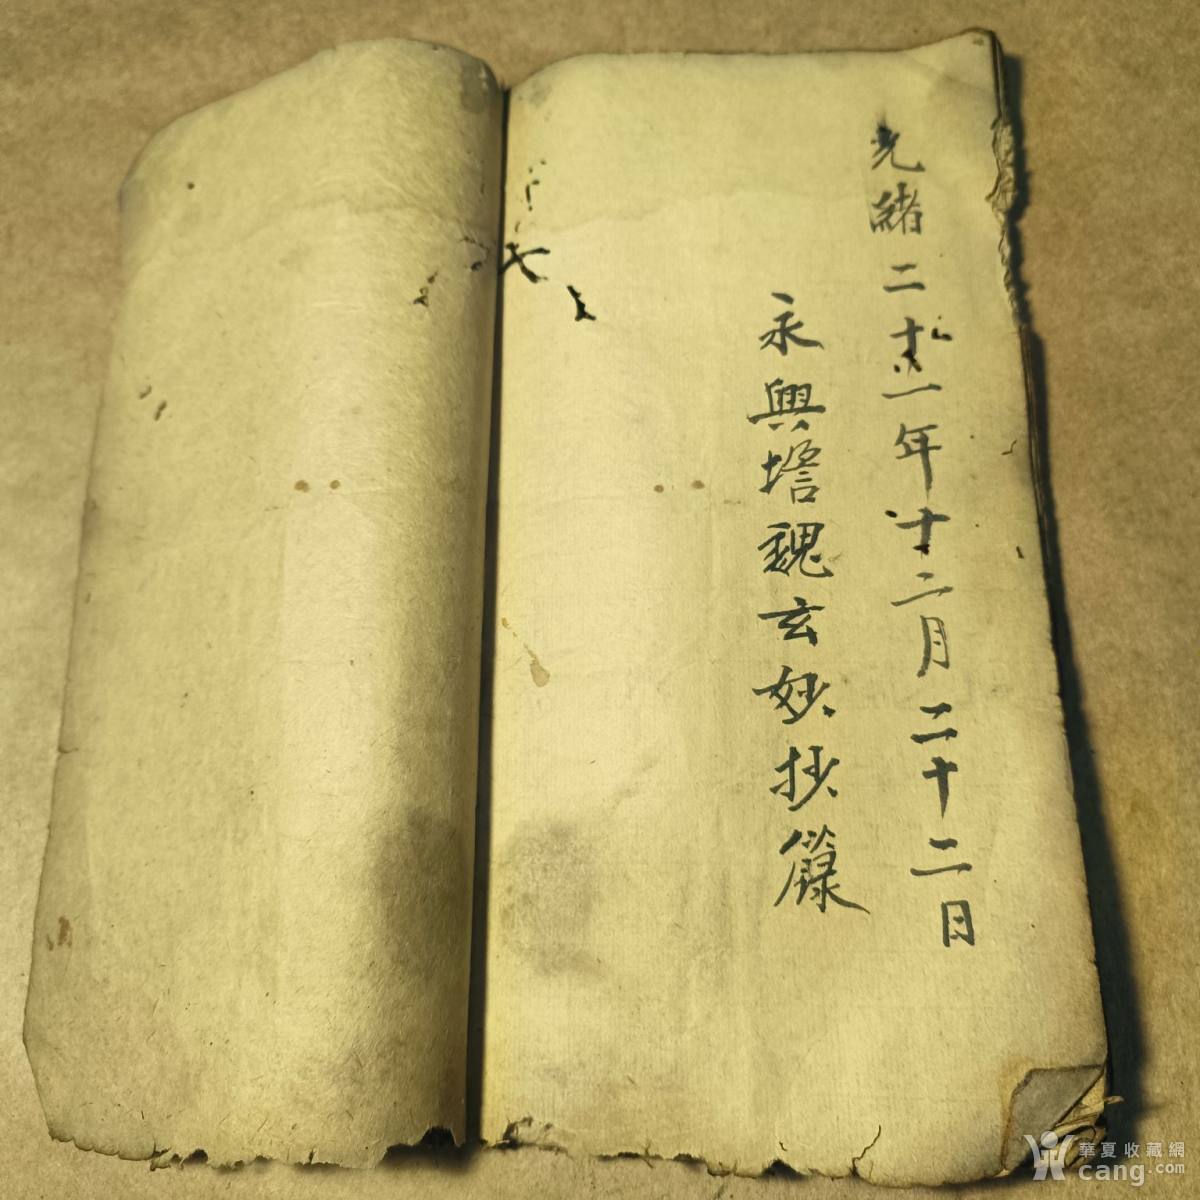 光緒二十一年十二月二十二日
永興壋魏玄妙抄籙
華夏收藏網
cang.com